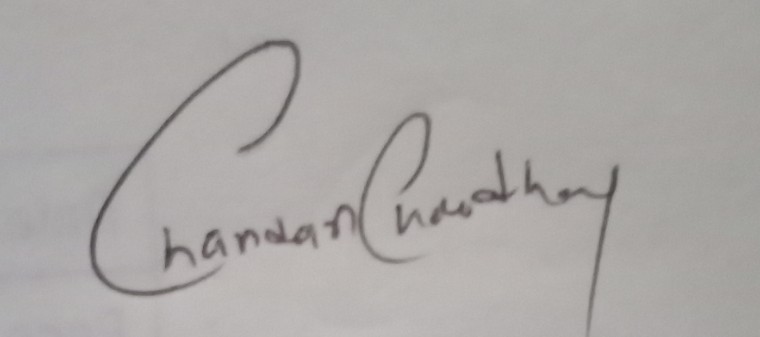 Chandan Choudhary